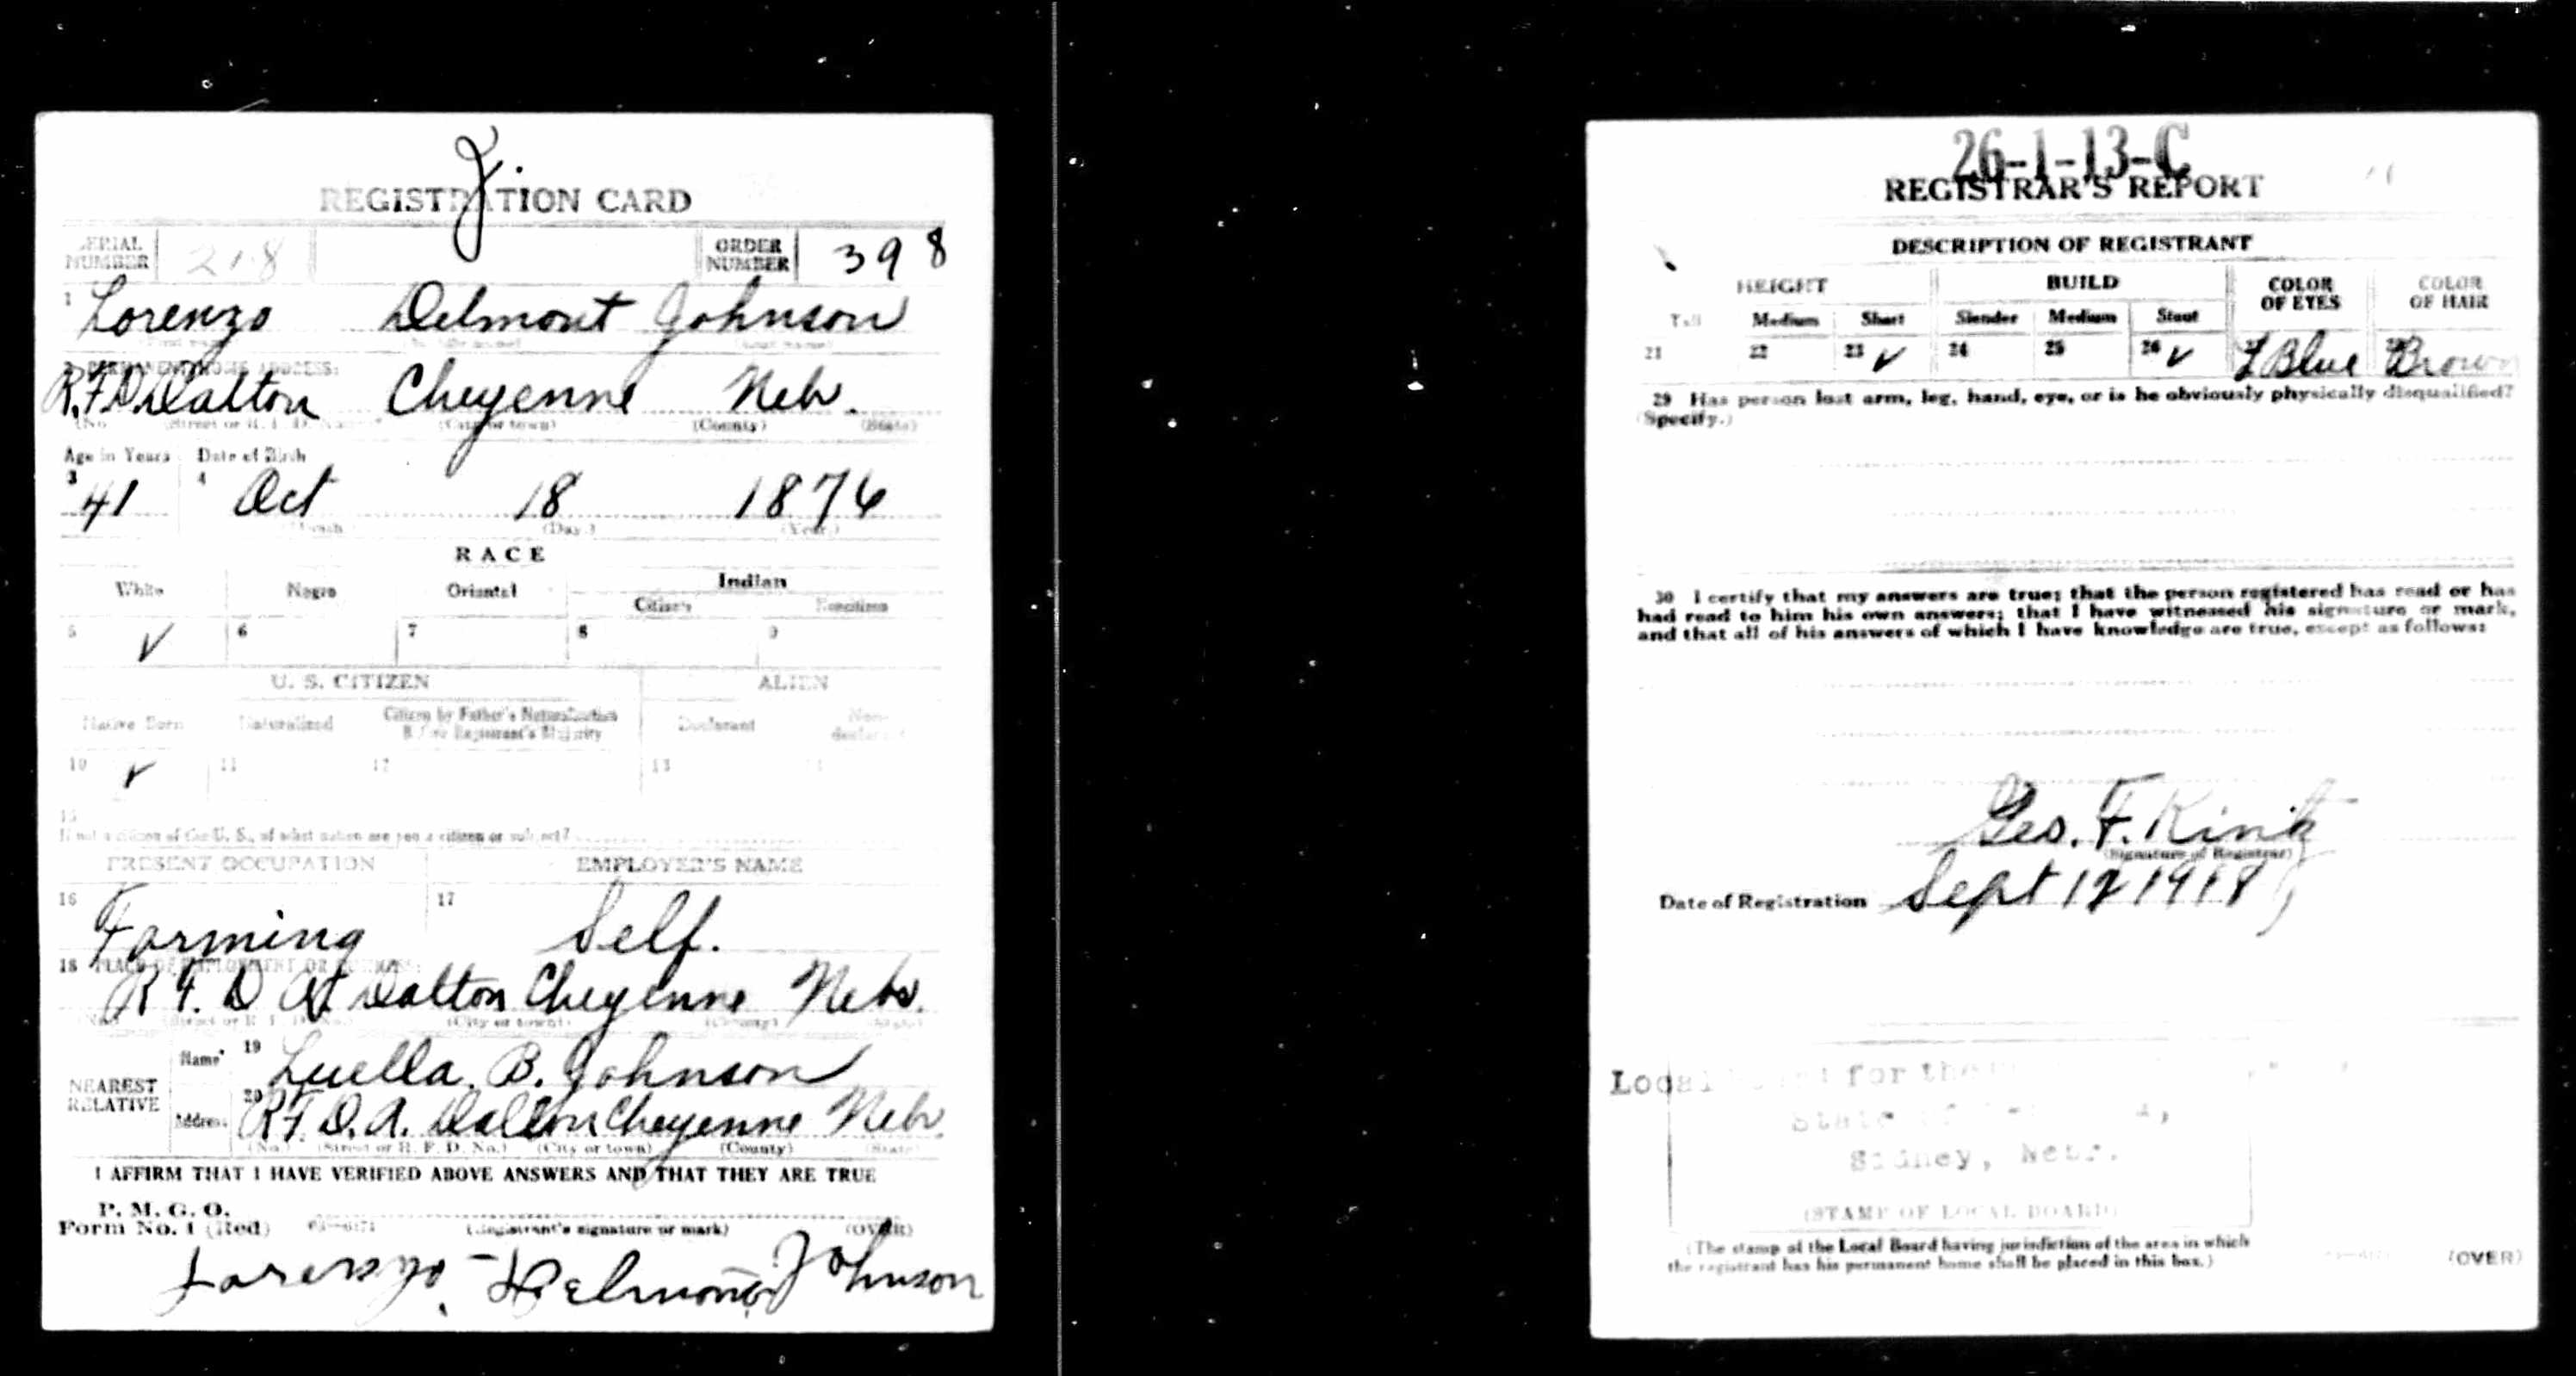 REGISTRATION CARD
SERIAL NUMBER 218 ORDER NUMBER 398
1 Lorenzo Delmont Johnson
(Last name)
2 PERMANENT HOME ADDRESS:
R.F.D. Dalton Cheyenne Nebr.
(No.) (Street or R. F. D. No.) (City or town) (County) (State)
Age in Years Date of Birth
3 41 4 Oct 18 1876
(Month) (Day.) (Year.)
RACE
White Negro Oriental Indian
Citizen Noncitizen
5 ✓ 6 7 8 9
U. S. CITIZEN ALIEN
Native Born Naturalized Citizen by Father's Naturalization Before Registrant's Majority Declarant Non-declarant
10 ✓ 11 12 13
15
If not a citizen of the U. S., of what nation are you a citizen or subject?
PRESENT OCCUPATION EMPLOYER'S NAME
16 Farming 17 Self.
18 PLACE OF EMPLOYMENT OR BUSINESS:
R F. D At Dalton Cheyenne Nebr.
(No.) (Street or R. F. D. No.) (City or town) (County) (State)
NEAREST RELATIVE
Name 19 Luella. B. Johnson
Address 20 R F D. A. Dalton Cheyenne Nebr
(No.) (Street or R. F. D. No.) (City or town) (County) (State)
I AFFIRM THAT I HAVE VERIFIED ABOVE ANSWERS AND THAT THEY ARE TRUE
P. M. G. O.
Form No. 1 (Red) (Registrant's signature or mark) (OVER)
Lorenzo Delmont Johnson
26-1-13-C
REGISTRAR'S REPORT
DESCRIPTION OF REGISTRANT
HEIGHT BUILD COLOR OF EYES COLOR OF HAIR
Tall Medium Short Slender Medium Stout
21 22 23 ✓ 24 25 26 ✓ L Blue Brown
29 Has person lost arm, leg, hand, eye, or is he obviously physically disqualified?
(Specify.)
30 I certify that my answers are true; that the person registered has read or has
had read to him his own answers; that I have witnessed his signature or mark,
and that all of his answers of which I have knowledge are true, except as follows:
Geo. F.
(Signature of Registrar)
Date of Registration Sept 12 1918
Local for the
State of
Sidney, Nebr.
(STAMP OF LOCAL BOARD)
(The stamp of the Local Board having jurisdiction of the area in which
the registrant has his permanent home shall be placed in this box.)
(OVER)